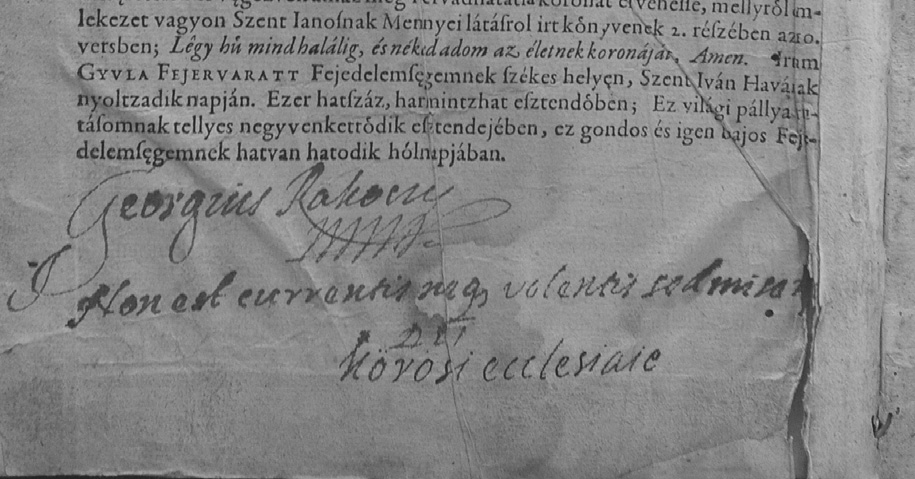 koronát el venesse, mellyről
lekezet vagyon Szent Ianosnak Mennyei látásrol irt kőnyvenek 2. részében a 10.
versben; Légy hű mind halálig, és néked adom az életnek koronáját, Amen. Iram
GYVLA FEJERVARATT Fejedelemsęgemnek székes helyęn, Szent Iván Havának
nyoltzadik napján. Ezer hatszáz, harmintzhat esztendőben; Ez világi pállya fu-
tásomnak tellyes negyvenkettődik esztendejében, ez gondos és igen bajos Feje-
delemsęgemnek hatvan hatodik hólnapjában.
Georgius Rakoczy
Non est currentis neq; volentis sed miserentis
Dei
Körösi ecclesiaie